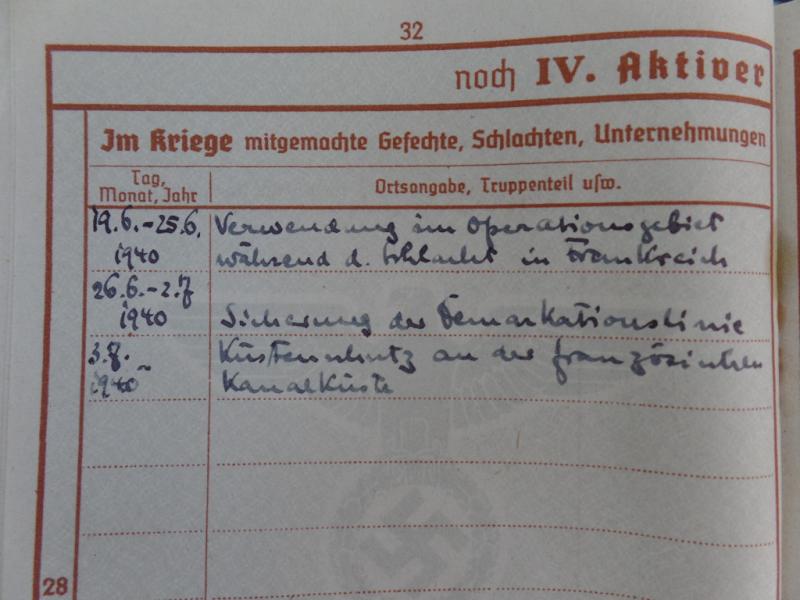 32
noch IV. Aktiver
Im Kriege mitgemachte Gefechte, Schlachten, Unternehmungen
Tag,
Monat, Jahr
Ortsangabe, Truppenteil usw.
19.6.-25.6. Verwendung im Operationsgebiet
1940 während d. Schlacht in Frankreich
26.6.-2.7
1940 Sicherung der Demarkationslinie
3.7. Küstenschutz an der französischen
1940- Kanalküste
28